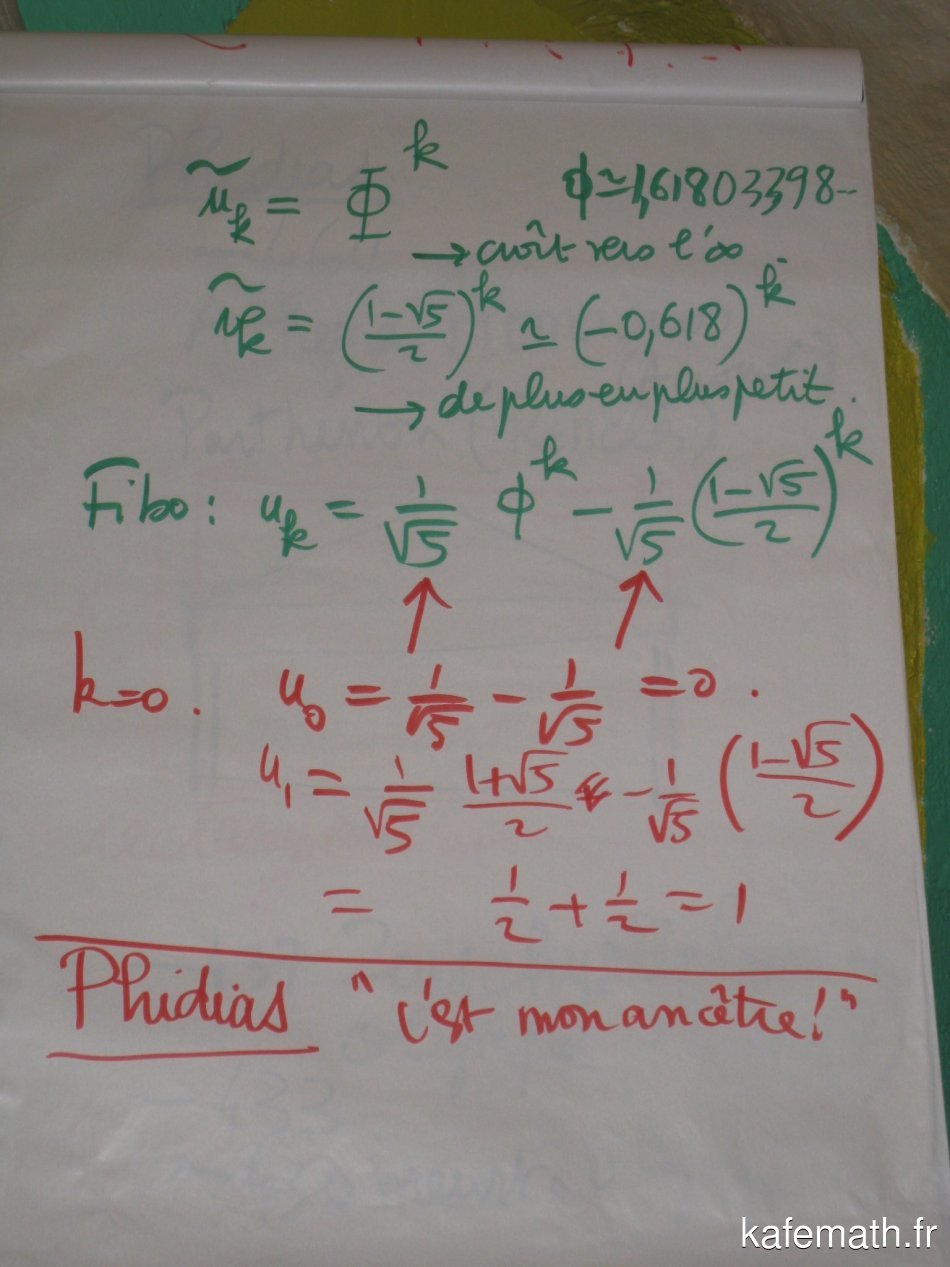 ũₖ = Φ^k ϕ ≃ 1,61803398..
→ croît vers l'∞
ṽₖ = ((1-√5)/2)^k ≃ (-0,618)^k
→ de plus en plus petit.
Fibo : uₖ = 1/√5 ϕ^k - 1/√5 ((1-√5)/2)^k
↑ ↑
k=0. u₀ = 1/√5 - 1/√5 = 0.
u₁ = 1/√5 (1+√5)/2 - 1/√5 ((1-√5)/2)
= 1/2 + 1/2 = 1
Phidias "c'est mon ancêtre!"
kafemath.fr